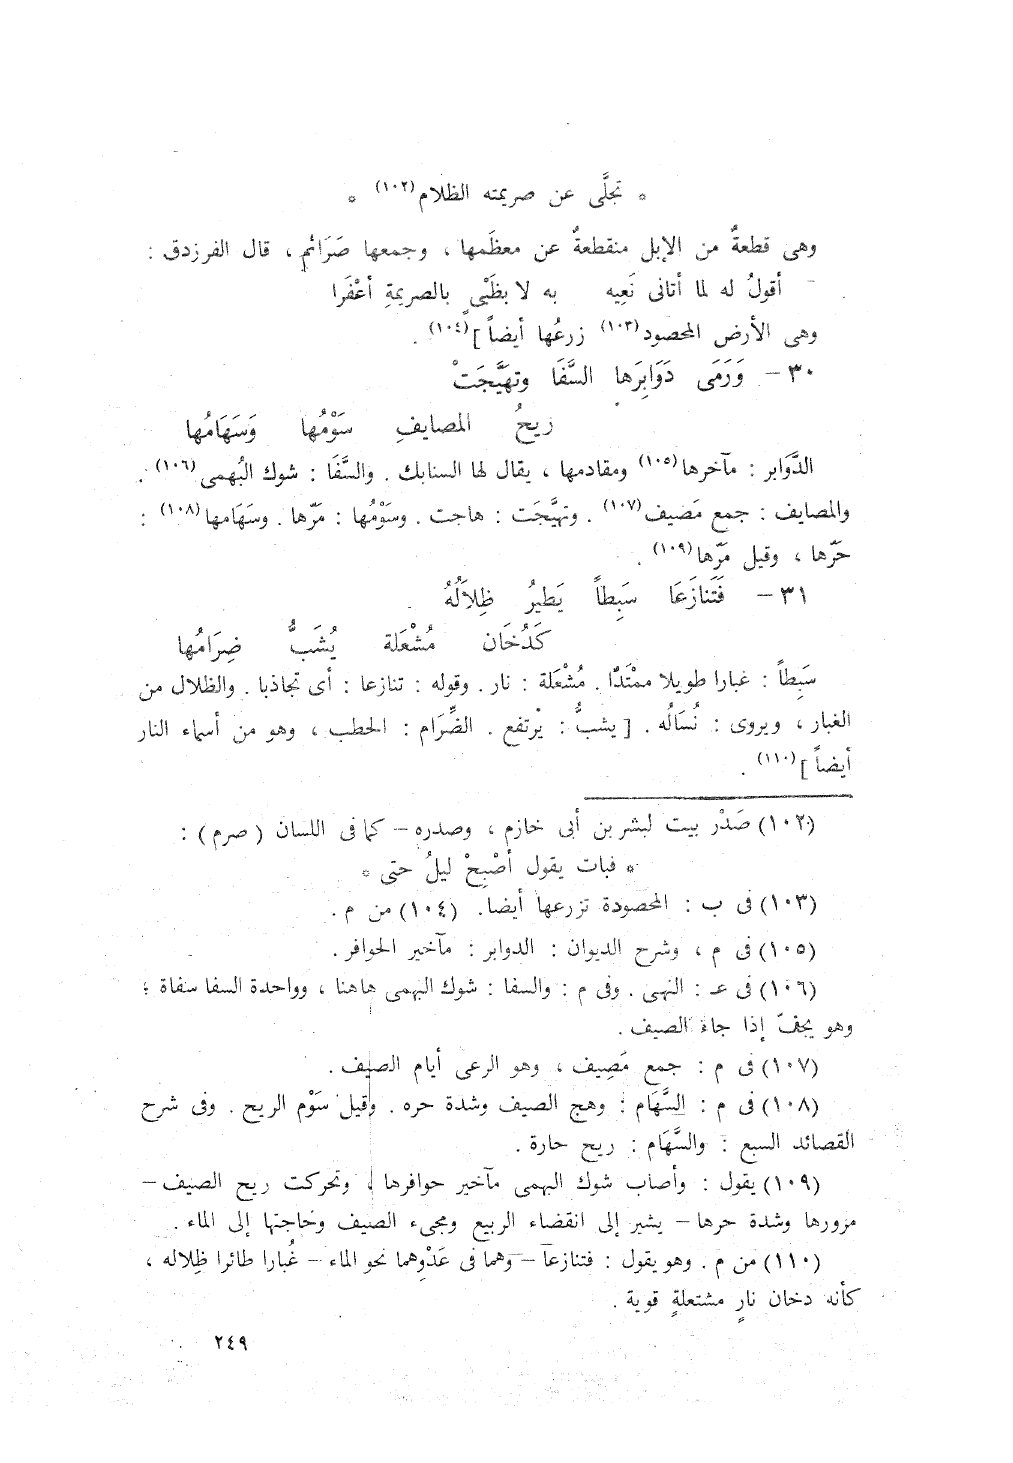 * تجلَّى عن صريمته الظلام(١٠٢) *
وهى قطعةٌ من الإبل منقطعةٌ عن معظَمها ، وجمعها صَرَائم ، قال الفرزدق :
أقولُ له لما أتانى نَعِيه به لا بظَبْىٍ بالصريمةِ أعْفَرا
وهى الأرض المحصود(١٠٣) زرعُها أيضاً ](١٠٤) .
٣٠ – وَرَمَى دَوَابِرَها السَّفَا وتهَيَّجَتْ
ريحُ المصايفِ سَوْمُها وَسَهَامُها
الدَّوَابر : مآخرها(١٠٥) ومقادمها ، يقال لها السنابك . والسَّفَا : شوك البُهمى(١٠٦) .
والمصايف : جمع مَصيف(١٠٧) . وتهيَّجَت : هاجت . وسَوْمُها : مَرّها . وسَهَامها(١٠٨) :
حَرّها ، وقيل مَرّها(١٠٩) .
٣١ – فَتَنازَعَا سَبِطاً يَطيرُ ظِلاَلُهُ
كَدُخَان مُشْعَلة يُشَبُّ ضِرَامُها
سَبِطاً : غبارا طويلا ممْتَدًّا . مُشْعَلة : نار . وقوله : تنازعا : أى تجاذبا . والظلال من
الغبار ، ويروى : نُسَالُه . [ يشبُّ : يرتفع . الضِّرَام : الحطب ، وهو من أسماء النار
أيضاً ](١١٠) .
(١٠٢) صَدْر بيت لبشر بن أبى خازم ، وصدره – كما فى اللسان ( صرم ) :
* فبات يقول أصْبِحْ ليلُ حتى *
(١٠٣) فى ب : المحصودة تزرعها أيضا. (١٠٤) من م .
(١٠٥) فى م ، وشرح الديوان : الدوابر : مآخير الحوافر .
(١٠٦) فى عـ : النهى . وفى م : والسفا : شوك البهمى هاهنا ، وواحدة السفا سفاة ؛
وهو يجفّ إذا جاء الصيف .
(١٠٧) فى م : جمع مَصِيف ، وهو الرعى أيام الصيف .
(١٠٨) فى م : السَّهَام : وهج الصيف وشدة حره . وقيل سَوْم الريح . وفى شرح
القصائد السبع : والسَّهَام : ريح حارة .
(١٠٩) يقول : وأصاب شوك البهمى مآخير حوافرها ، وتحركت ريح الصيف –
مرورها وشدة حرها – يشير إلى انقضاء الربيع ومجىء الصيف وحاجتها إلى الماء .
(١١٠) من م . وهو يقول : فتنازعا – وهما فى عَدْوِهما نحو الماء – غُبارا طائرا ظِلاله ،
كأنه دخان نارٍ مشتعلةٍ قوية .
٢٤٩